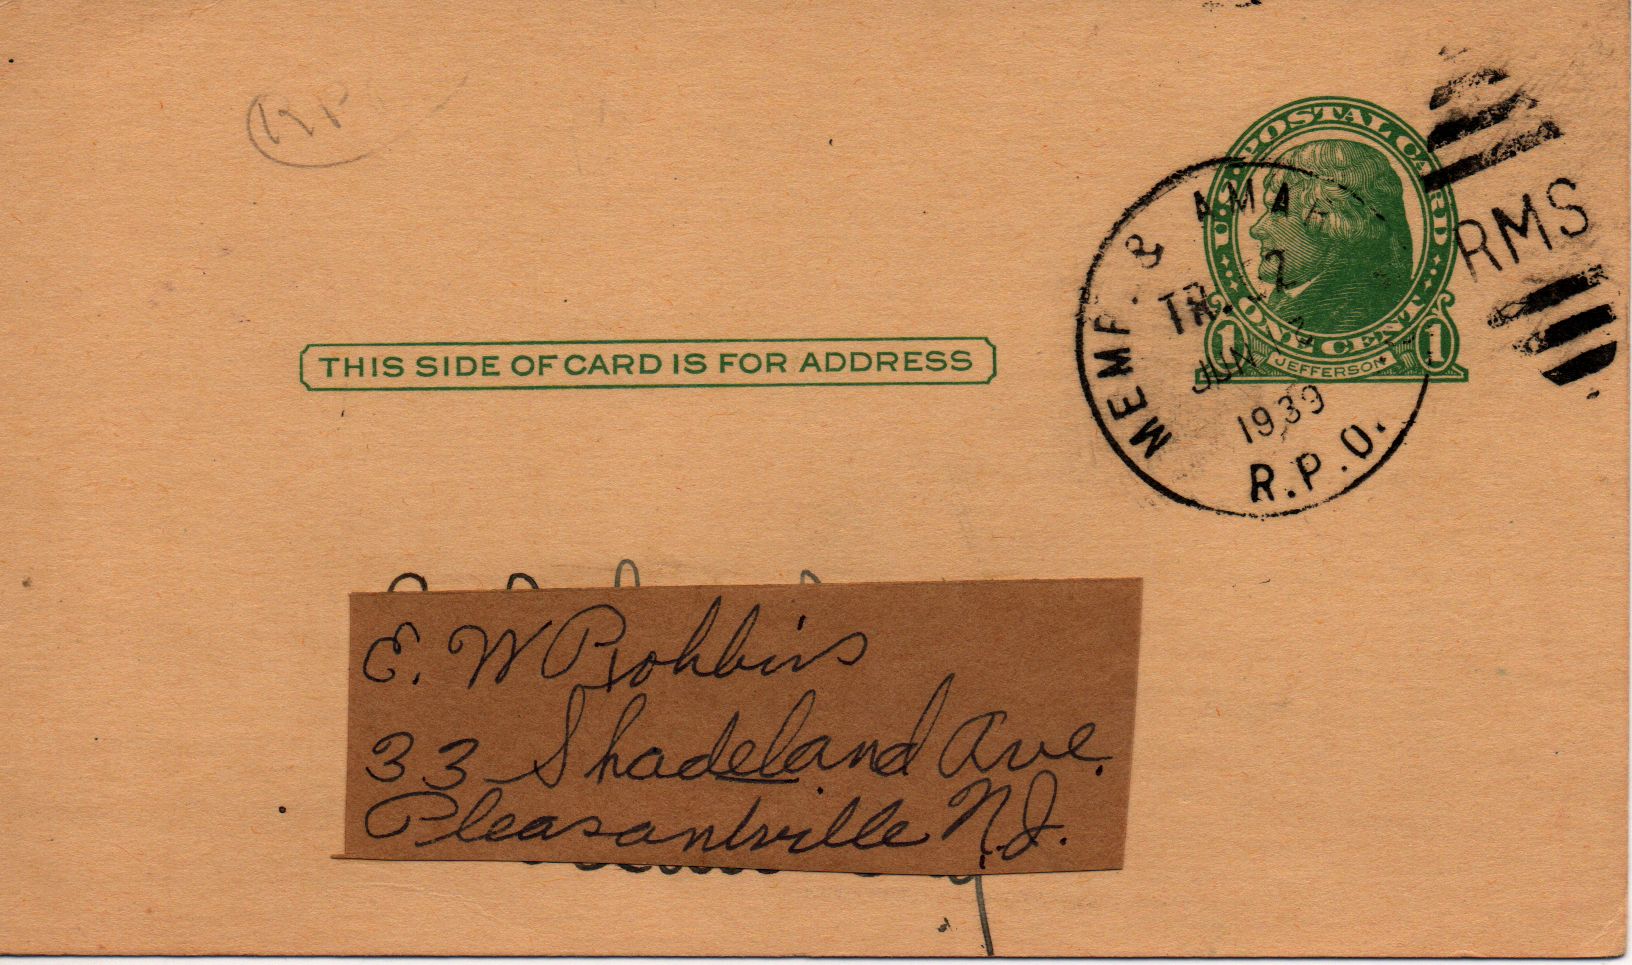 U.S. POSTAL CARD
MEMP. & AMAR
TR. 22
JUN
1939
R.P.O.
RMS
1 ONE CENT 1
JEFFERSON
THIS SIDE OF CARD IS FOR ADDRESS
E. W Robbins
33 Shadeland Ave.
Pleasantville N.J.